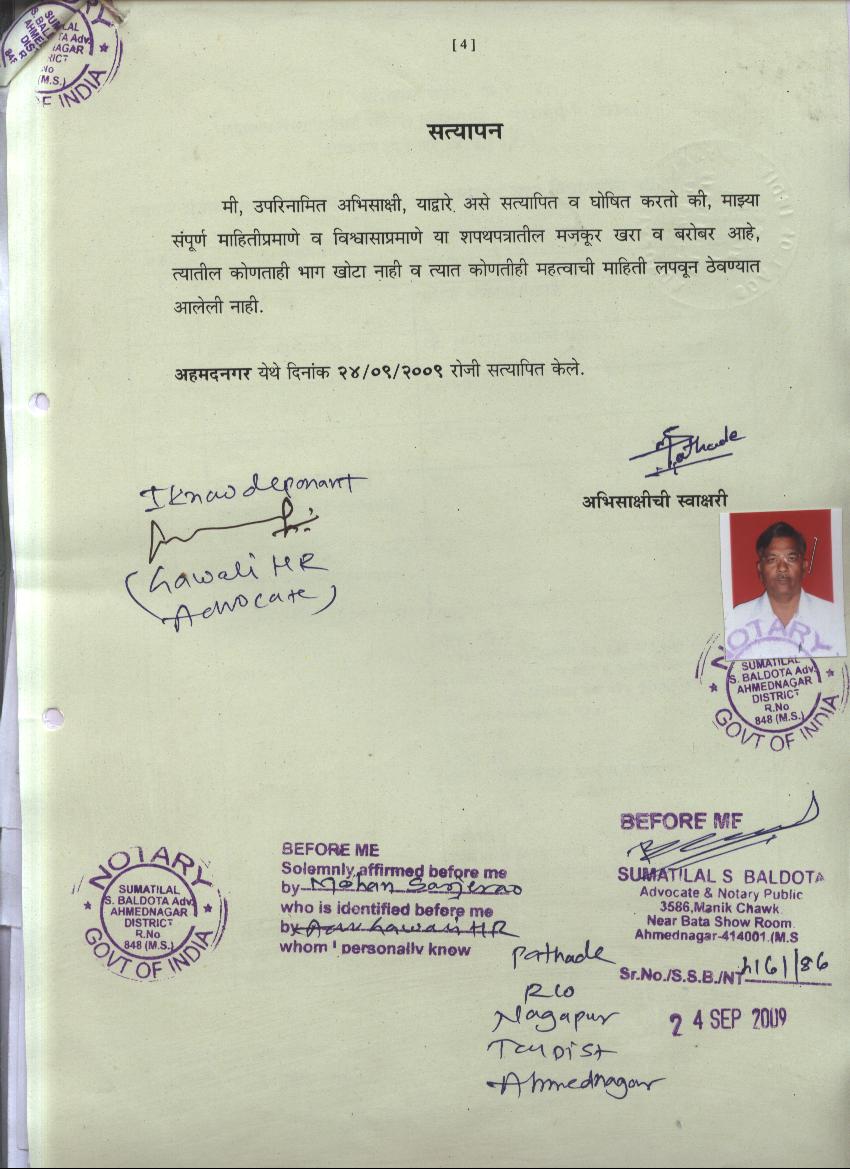 [4]
सत्यापन
मी, उपरिनामित अभिसाक्षी, याद्वारे असे सत्यापित व घोषित करतो की, माझ्या
संपूर्ण माहितीप्रमाणे व विश्वासाप्रमाणे या शपथपत्रातील मजकूर खरा व बरोबर आहे,
त्यातील कोणताही भाग खोटा नाही व त्यात कोणतीही महत्वाची माहिती लपवून ठेवण्यात
आलेली नाही.
अहमदनगर येथे दिनांक २४/०९/२००९ रोजी सत्यापित केले.
Pathade
अभिसाक्षीची स्वाक्षरी
I know deponant
(Gawali HR
Advocate)
NOTARY
SUMATILAL
S. BALDOTA Adv.
AHMEDNAGAR
DISTRICT
R.No
848 (M.S.)
GOVT OF INDIA
NOTARY
SUMATILAL
S. BALDOTA Adv.
AHMEDNAGAR
DISTRICT
R.No
848 (M.S.)
GOVT OF INDIA
BEFORE ME
Solemnly affirmed before me
by Mohan
who is identified before me
by Adv. Gawali HR
whom I personally know
Pathade
R/o
Nagapur
Tal Dist
Ahmednagar
BEFORE ME
SUMATILAL S BALDOTA
Advocate & Notary Public
3586,Manik Chawk.
Near Bata Show Room.
Ahmednagar-414001.(M.S
Sr.No./S.S.B./NT
24 SEP 2009